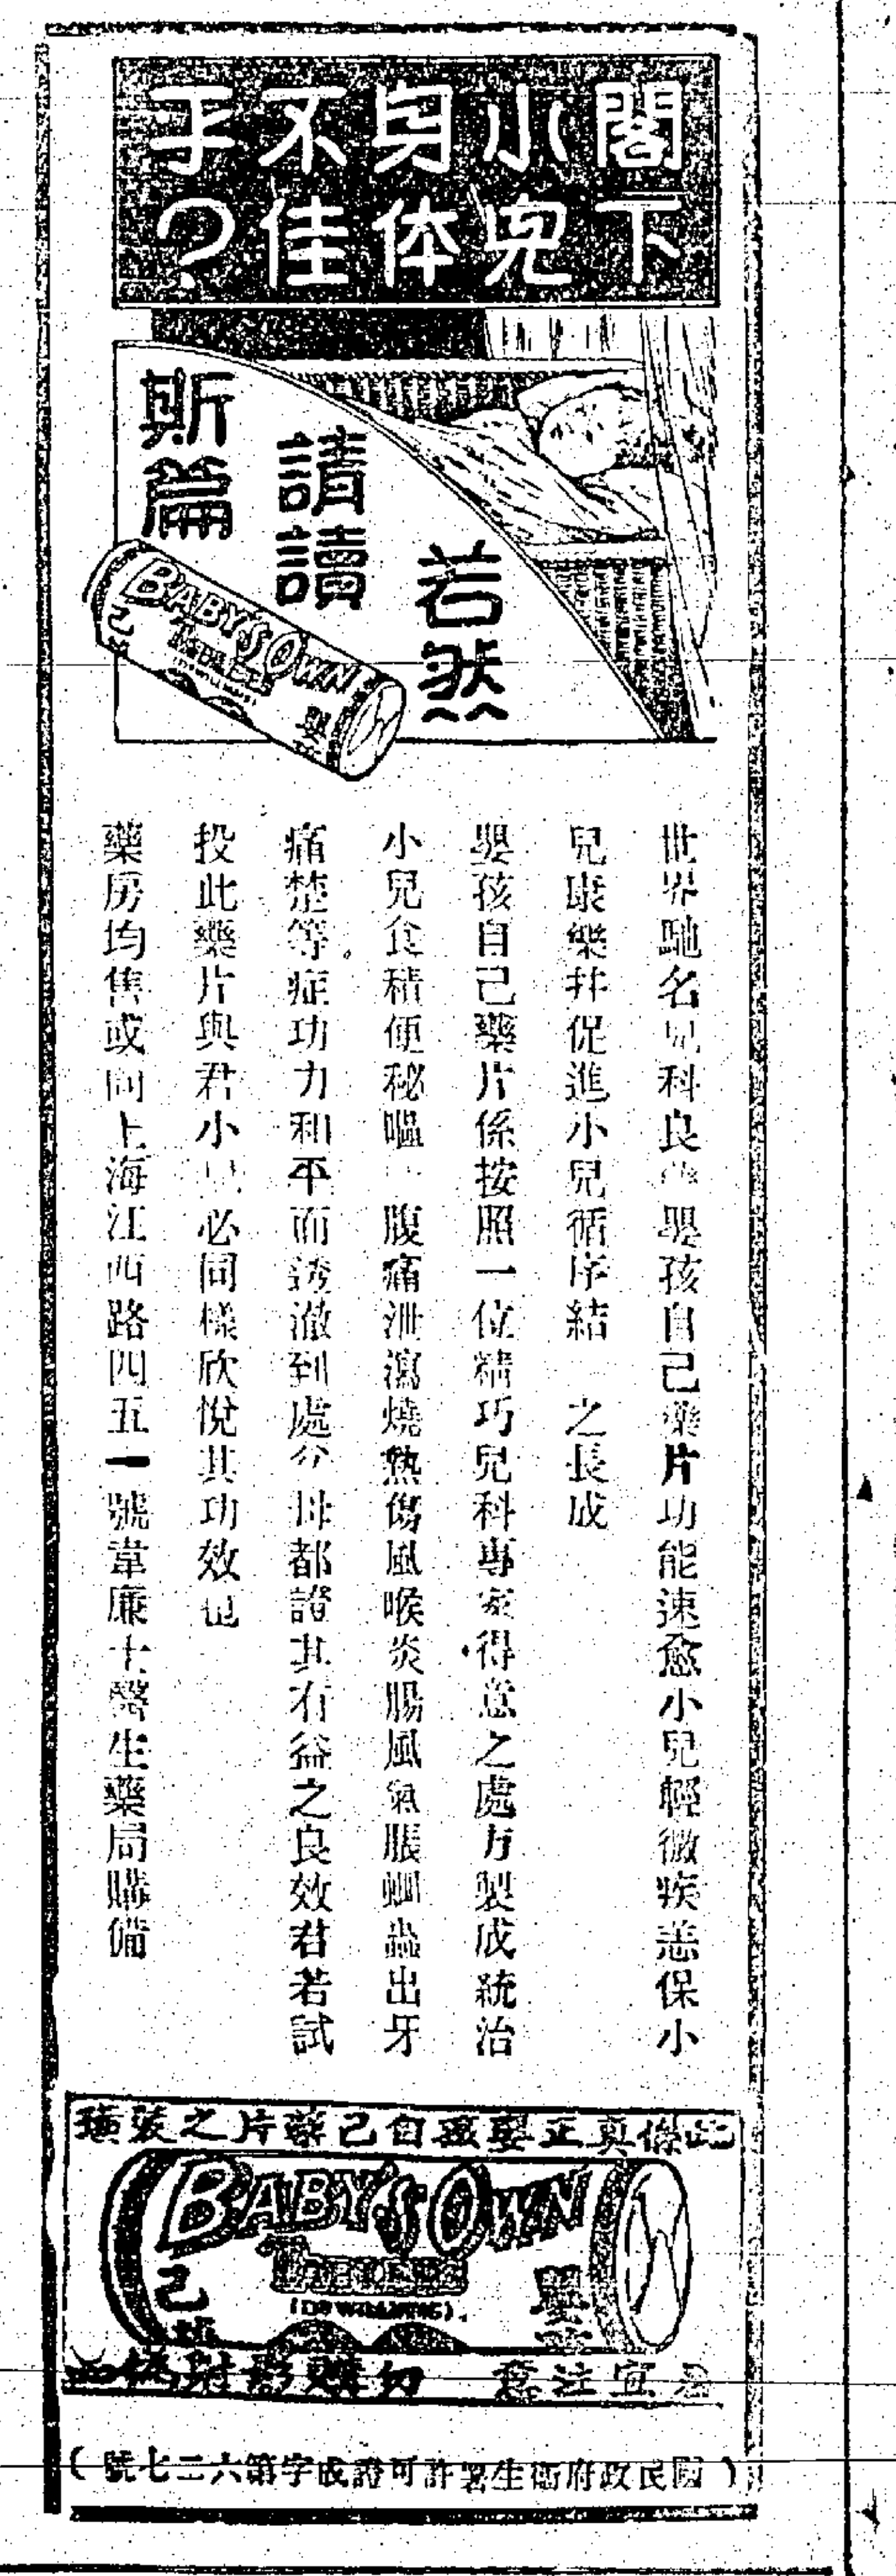 閣下
小兒
身体
不佳
乎?
若然
請讀
斯篇
BABY'S OWN
TABLETS
己
嬰孩
世界馳名兒科良 嬰孩自己藥片功能速愈小兒輕微疾恙保小
兒康樂幷促進小兒循序結 之長成
嬰孩自己藥片係按照一位精巧兒科專家得意之處方製成統治
小兒食積便秘嘔 腹痛泄瀉燒熱傷風喉炎腸風氣脹蛔蟲出牙
痛楚等症功力和平而透澈到處父母都證其有益之良效君若試
投此藥片與君小兒必同樣欣悅其功效也
藥房均售或向上海江西路四五一號韋廉士醫生藥局購備
此係真正嬰孩自己藥片之裝璜
BABY'S OWN
TABLETS
(DR WILLIAMS)
己
嬰
宜注意 勿購影射僞
(國民政府衛生署許可證成字第六二七號)